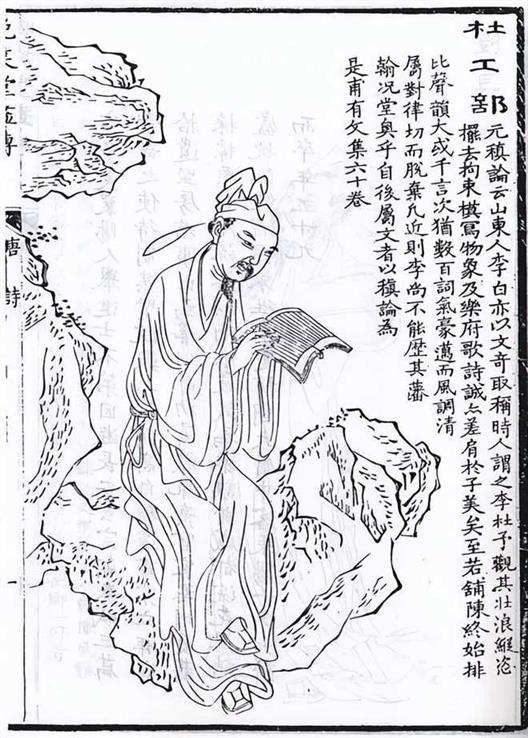 杜工部
元稹論云山東人李白亦以文奇取稱時人謂之李杜予觀其壯浪縱恣
擺去拘束模寫物象及樂府歌詩誠亦差肩於子美矣至若鋪陳終始排
比聲韻大或千言次猶數百詞氣豪邁而風調清
屬對律切而脫棄凡近則李尚不能歷其藩
翰况堂奧乎自後屬文者以稹論為
是甫有文集六十卷
笑堂畫傳